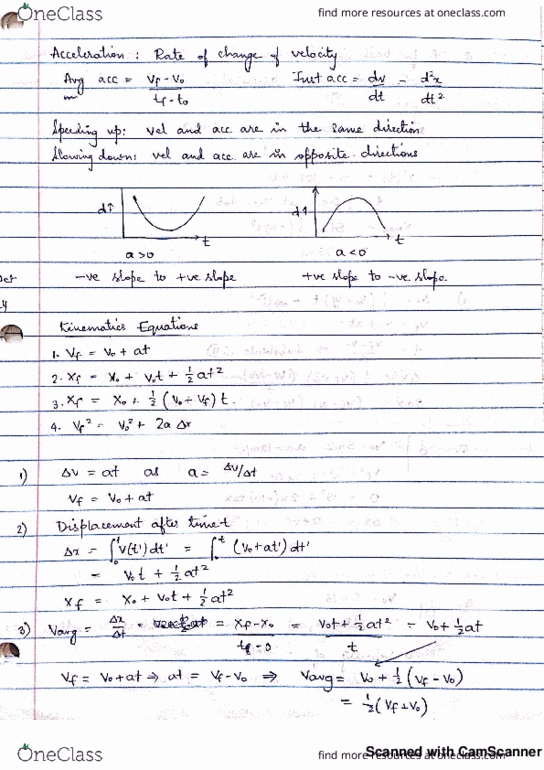 OneClass find more resources at oneclass.com
Acceleration : Rate of change of velocity
Avg acc = (Vf - V0)/(tf - t0) Inst acc = dv/dt = d²x/dt²
Speeding up: vel and acc are in the same direction
Slowing down: vel and acc are in opposite directions
d↑ t d↑ t
a > 0 a < 0
-ve slope to +ve slope +ve slope to -ve slope.
Kinematics Equations
1. Vf = V0 + at
2. Xf = X0 + V0t + ½ at²
3. Xf = X0 + ½ (V0 + Vf) t
4. Vf² = V0² + 2a Δx
1) ΔV = at as a = ΔV/Δt
Vf = V0 + at
2) Displacement after time t
Δx = ∫₀ᵗ V(t') dt' = ∫₀ᵗ (V0 + at') dt'
= V0t + ½ at²
Xf = X0 + V0t + ½ at²
3) Vavg = Δx/Δt = = (Xf - X0)/(tf - 0) = (V0t + ½ at²)/t = V0 + ½ at
Vf = V0 + at ⇒ at = Vf - V0 ⇒ Vavg = V0 + ½ (Vf - V0)
= ½ (Vf + V0)
OneClass find more resources at oneclass.com
Scanned with CamScanner